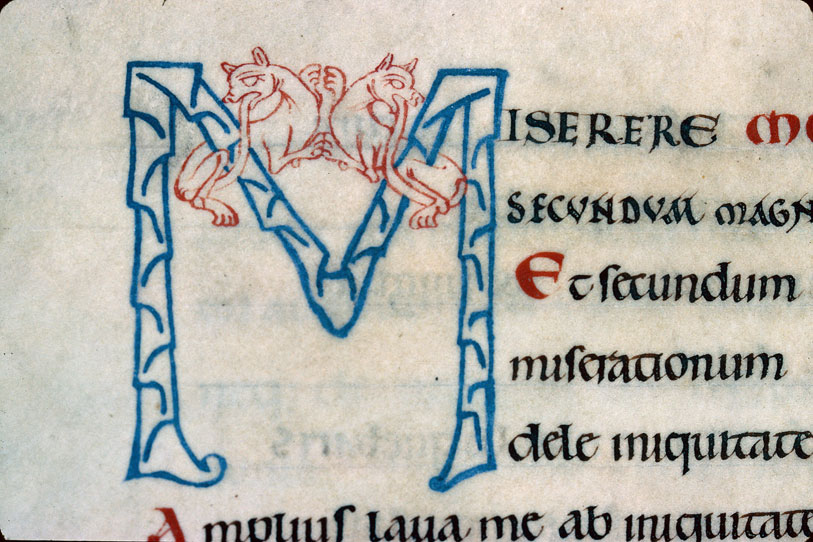 MISERERE ME
SECUNDUM MAGN
Et secundum
miserationum
dele iniquitate
Amplius laua me ab iniquitate